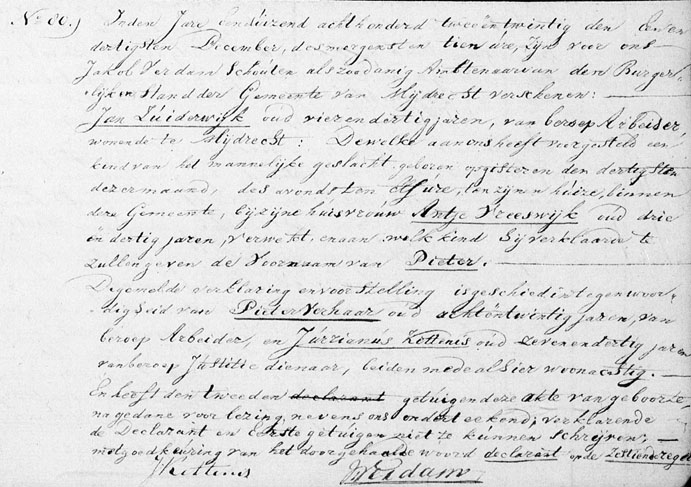 No. 60.) In den Jare Eenduizend achthonderd tweeëntwintig den Eenen
dertigsten December, des morgens ten tien úre, zijn voor ons
Jakob Verdam Schouten als zoodanig Ambtenaar van den Burger-
lijken Stand der Gemeente van Mijdrecht verschenen:
Jan Zúiderwijk oud vierendertig jaren, van beroep Arbeider,
wonende te Mijdrecht: Dewelke aan ons heeft voorgesteld een
kind van het mannelijke geslacht, geboren op gisteren den dertigsten
dezer maand, des avonds ten Elf úre, ten zijnen húize, binnen
deze Gemeente, bij zijne huisvroúw Antje Vreeswijk oud drie
en dertig jaren, verwekt, en aan welk kind hij verklaarde te
zullen geven de Voornaam van Pieter.
De gemelde verklaring en voorstelling is geschied in tegenwoor-
digheid van Pieter Verhaar oud achtentwintig jaren, van
beroep Arbeider, en Júrrianús Kettenis oud zevenendertig jaren
van beroep Jústitie dienaar, beiden mede alhier woonachtig.
En heeft den tweeden declarant getuigen deze akte van geboorte
na gedane voorlezing, nevens ons onderteekend; verklarende
de Declarant en Eerste getuigen niet te kunnen schrijven;
met goedkeuring van het doorgehaalde woord declarant op de zestiende regel
J Kettenis JVerdam